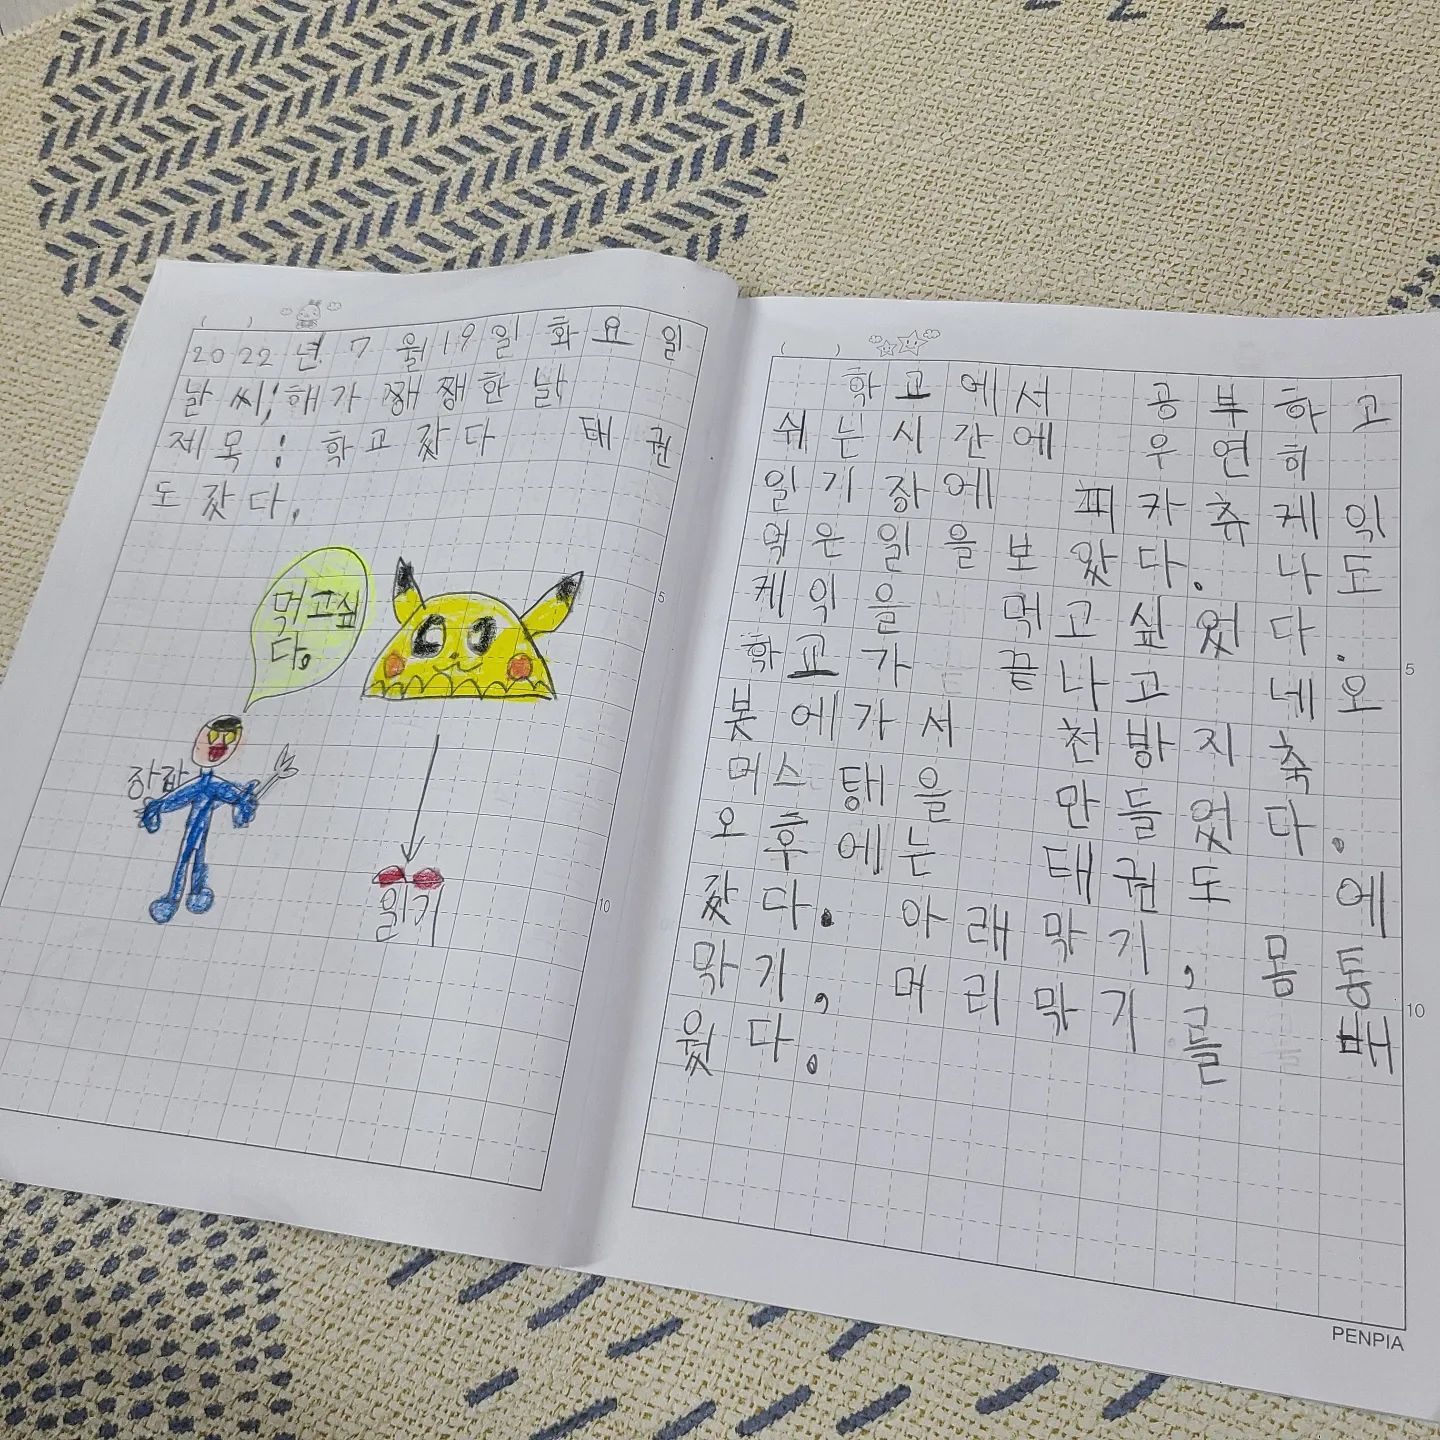 2022년 7월19일 화요일
날씨;해가 쨍쨍한날
제목: 학교갔다 태권
도갔다.
먹고싶
다.
일기
학교에서 공부하고
쉬는시간에 우연히
일기장에 피카츄케익
먹은일을보았다. 나도
케익을 먹고싶었다.
학교가 끝나고 네오
봇에가서 천방지축
머스탱을 만들었다.
오후에는 태권도 에
갔다. 아래막기, 몸통
막기, 머리막기를 배
웠다.
5
10
5
10
PENPIA